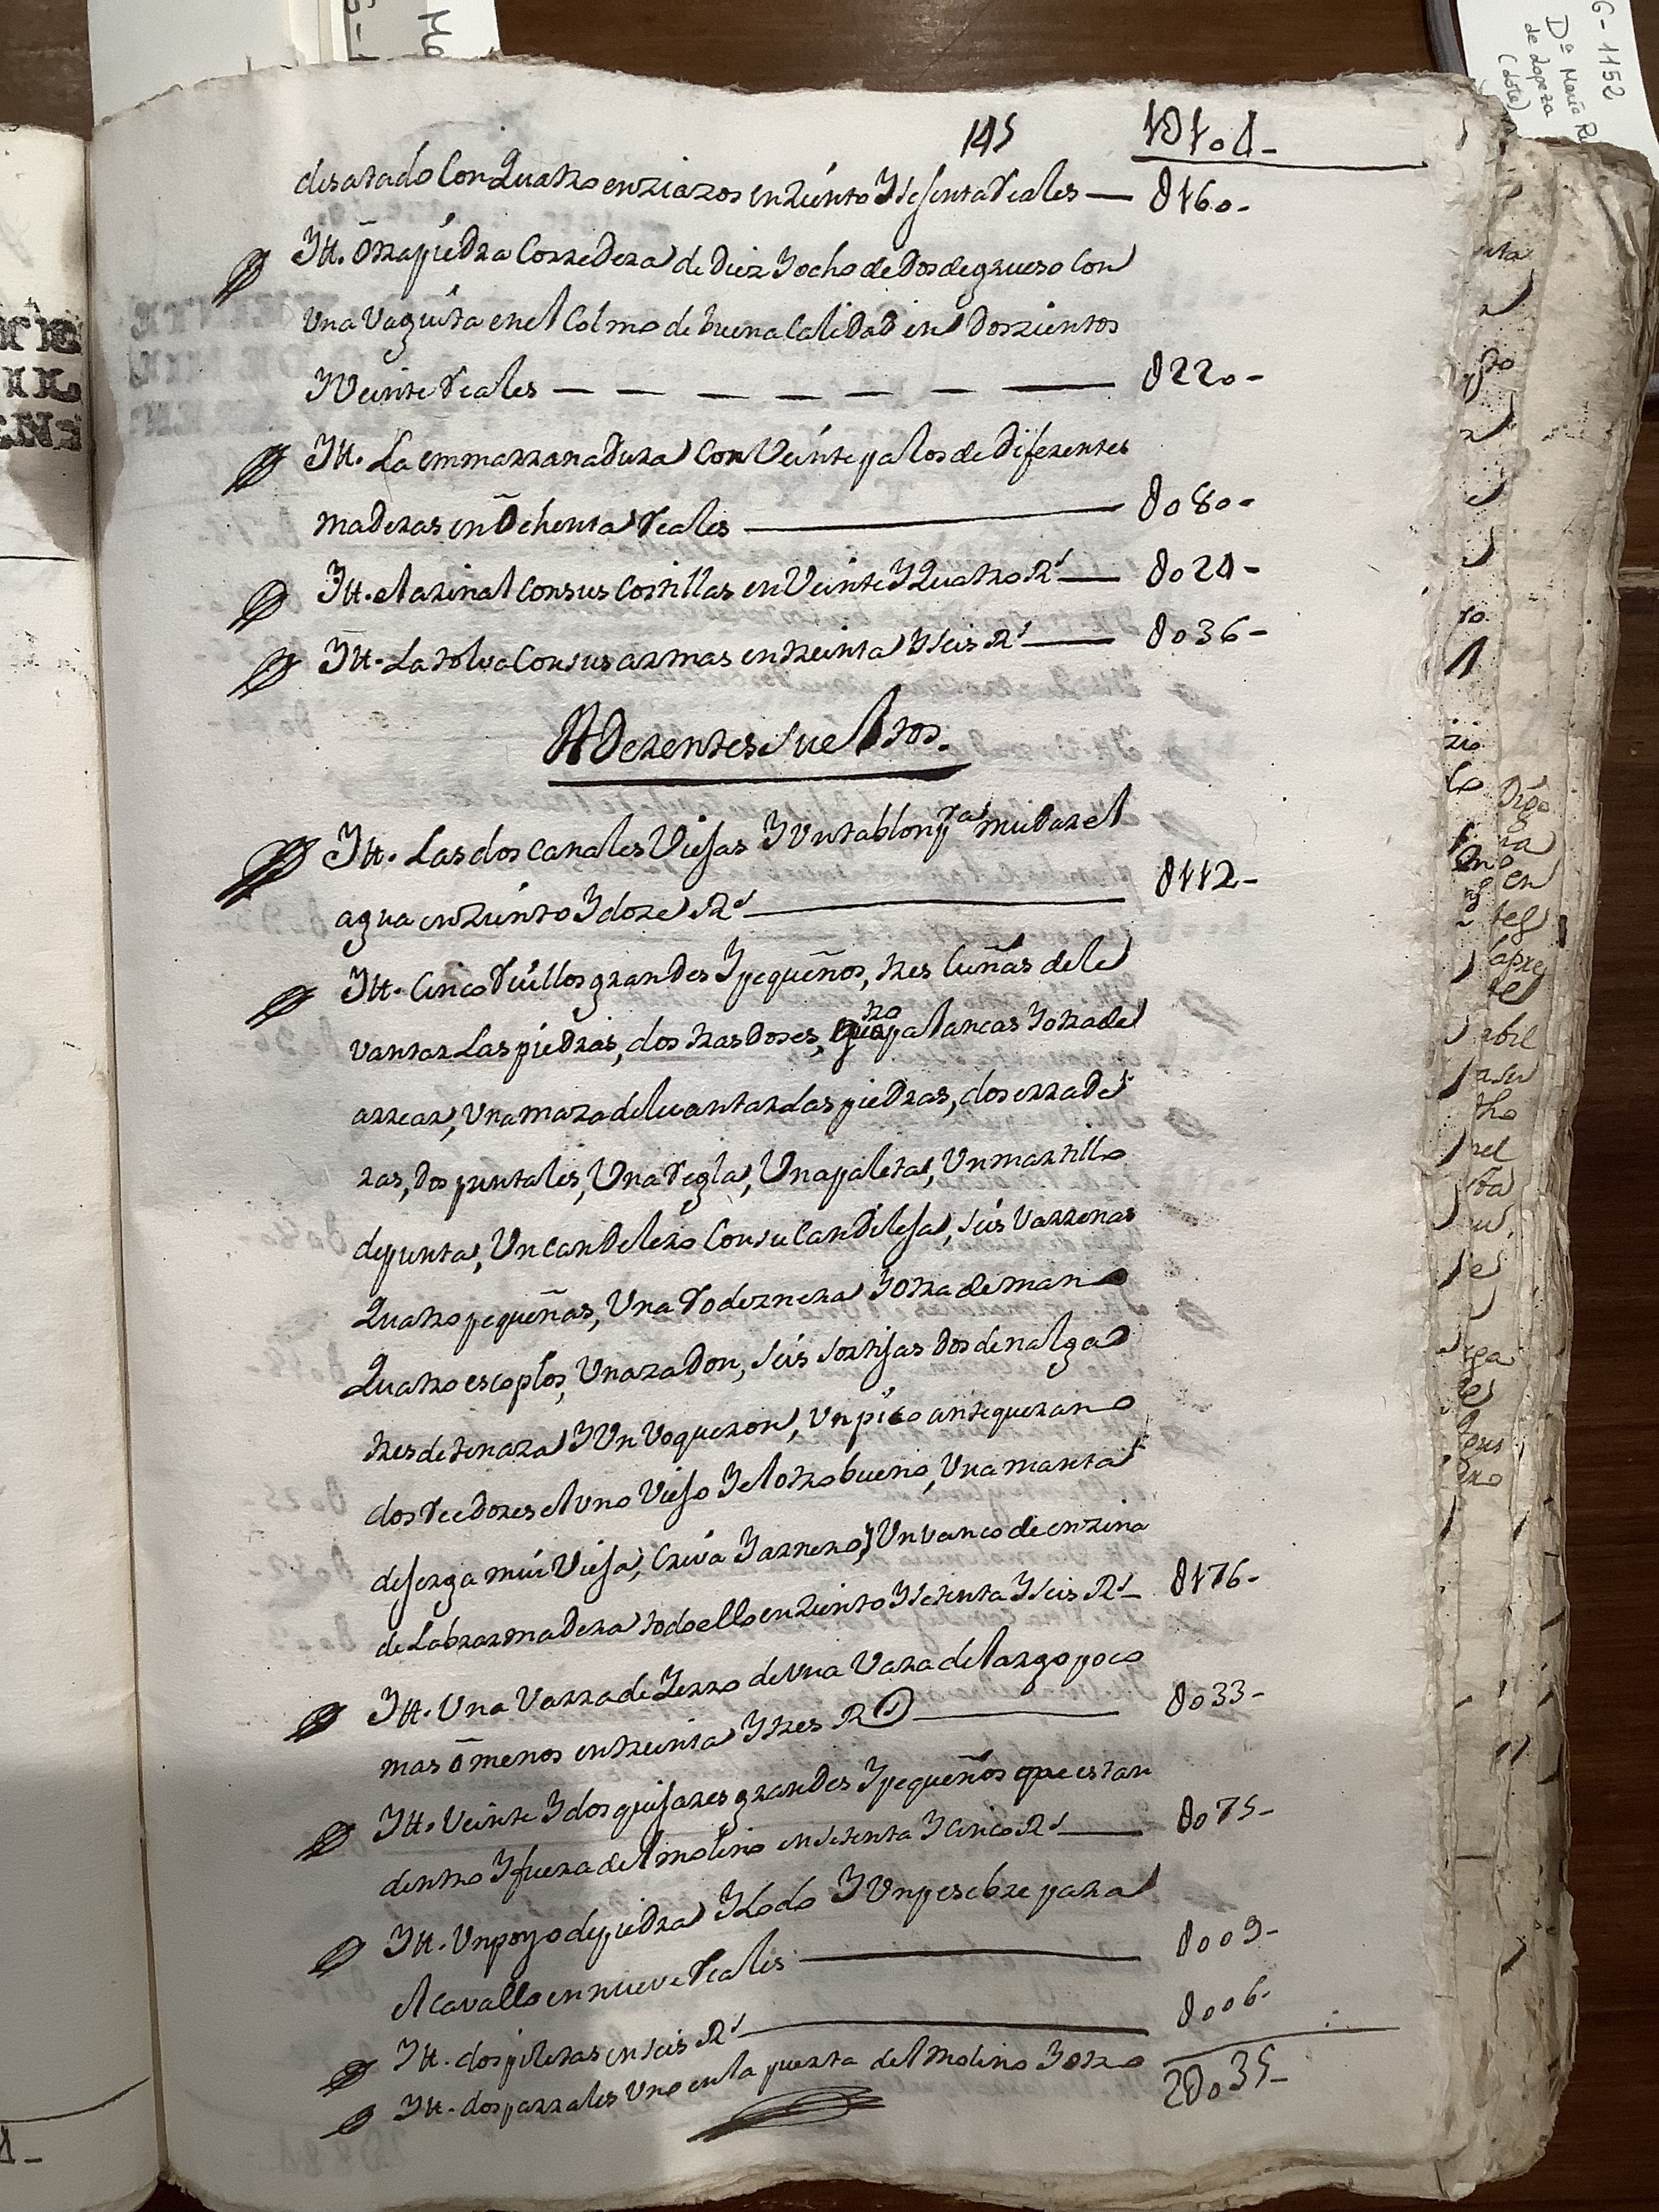 145
1U104-
desatado Con Quatro enziazos en Ziento Y sesenta Reales — U160-
Ytt. Otra piedra Corredera de Diez Y ocho de Dos de grueso Con
Una Vaguita en el Colmo de buena Calidad en Doszientos
Y Veinte Reales — — — — — — U220-
Ytt. La enmarranadura Con Veinte palos de Diferentes
maderas en Ochenta Reales — U080-
Ytt. el arinal con sus Costillas en Veinte Y Quatro Rs — U024-
Ytt. La tolva Con sus armas en treinta Y seis Rs — U036-
ADerentes sueltos.
Ytt. Las dos canales Viejas Y Un tablon pa mudar el
agua en Ziento Y doze Rs — U112-
Ytt. Cinco Rullos grandes Y pequeños, tres Cuñas de le
vantar Las piedras, dos trasdoses, quatro palancas Y otra de
arrear, Una maza de levantar Las piedras, dos errade
ras, Dos puntales, Una Regla, Una paleta, Un martillo
de punta, Un canDelero Con su CanDileja, seis Varrenas
Quatro pequeñas, Una Rodeznera Y otra de mano
Quatro escoplos, Un azadon, seis sortijas Dos de nalga
tres de tenaza Y Un Voqueron, Un pico antequerano
dos Reedores el uno Viejo Y el otro bueno, Una manta
de jerga mui Vieja, Criva Y arnero, Y Un vanco de enzina
de Labrar madera todo ello en Ziento Y setenta Y seis Rs — U176-
Ytt. Una Varra de Yerro de una Vara de largo poco
mas o menos en treinta Y tres Rs — U033-
Ytt. Veinte Y dos quijares grandes Y pequeños que estan
dentro Y fuera del molino en setenta Y cinco Rs — U075-
Ytt. Un poyo de piedra Y Lodo Y Un pesebre para
el cavallo en nueve Reales — U009-
Ytt. dos piletas en seis Rs — U006-
Ytt. dos parrales Uno en la puerta del Molino Y otro
2U035-